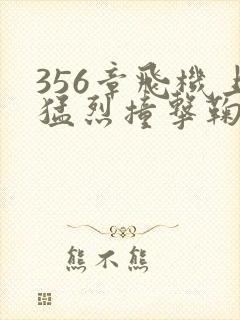 356章飛機上
猛烈撞撃鞠
熊不熊